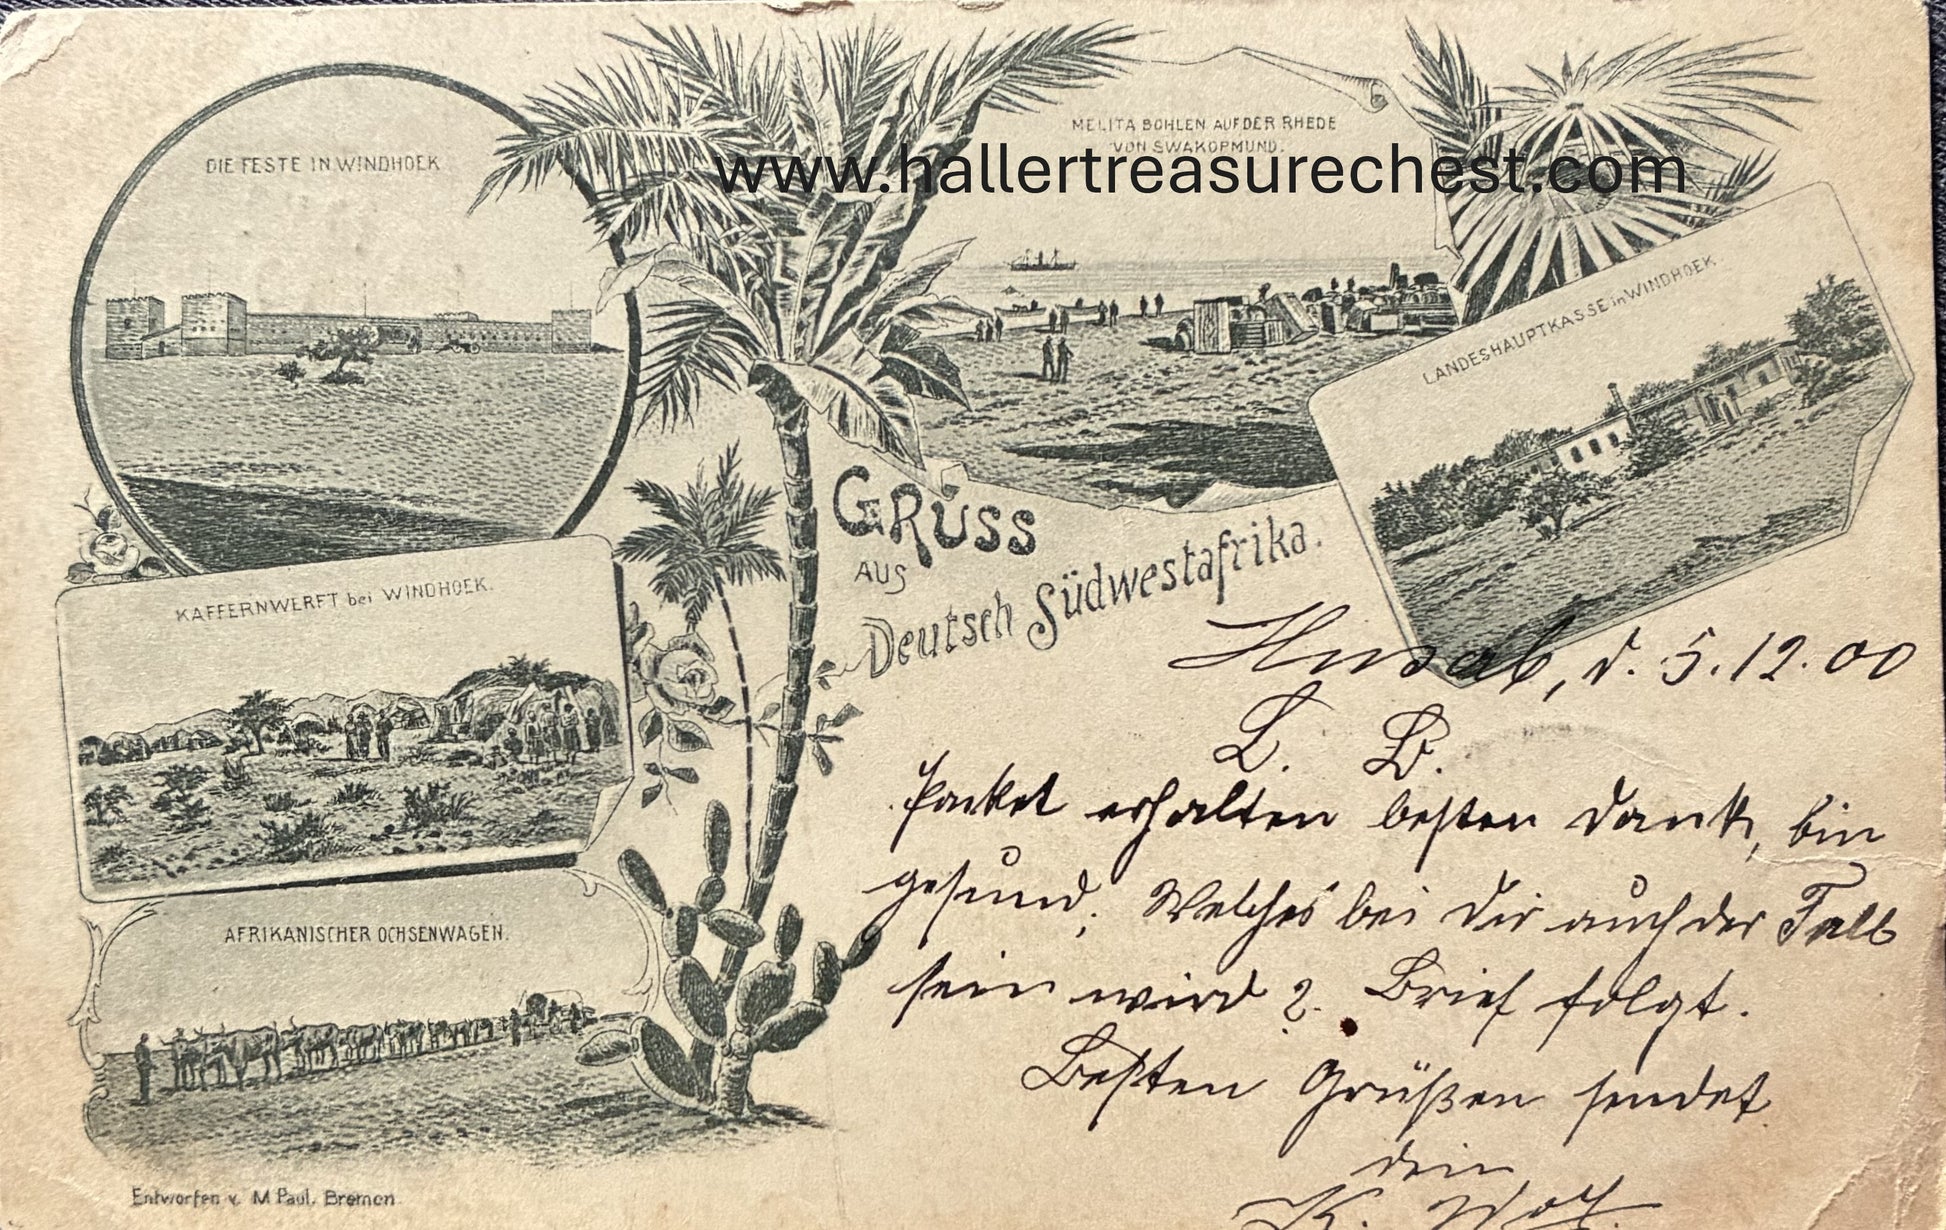 DIE FESTE IN WINDHOEK
MELITA BOHLEN AUF DER RHEDE
VON SWAKOPMUND.
www.hallertreasurechest.com
LANDESHAUPTKASSE in WINDHOEK.
GRUSS
AUS
Deutsch Südwestafrika.
KAFFERNWERFT bei WINDHOEK.
AFRIKANISCHER OCHSENWAGEN.
Entworfen v. M Paul, Bremen
Husab, d. 5.12.00
L. B.
Packet erhalten besten Dank, bin
gesund, Welches bei Dir auch der Fall
sein wird ?. Brief folgt.
Besten Grüßen sendet
dein
K.